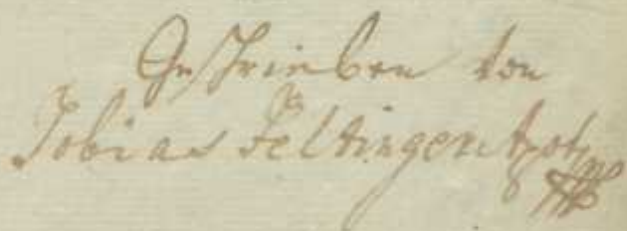 Geschrieben von
Tobias Feltingen